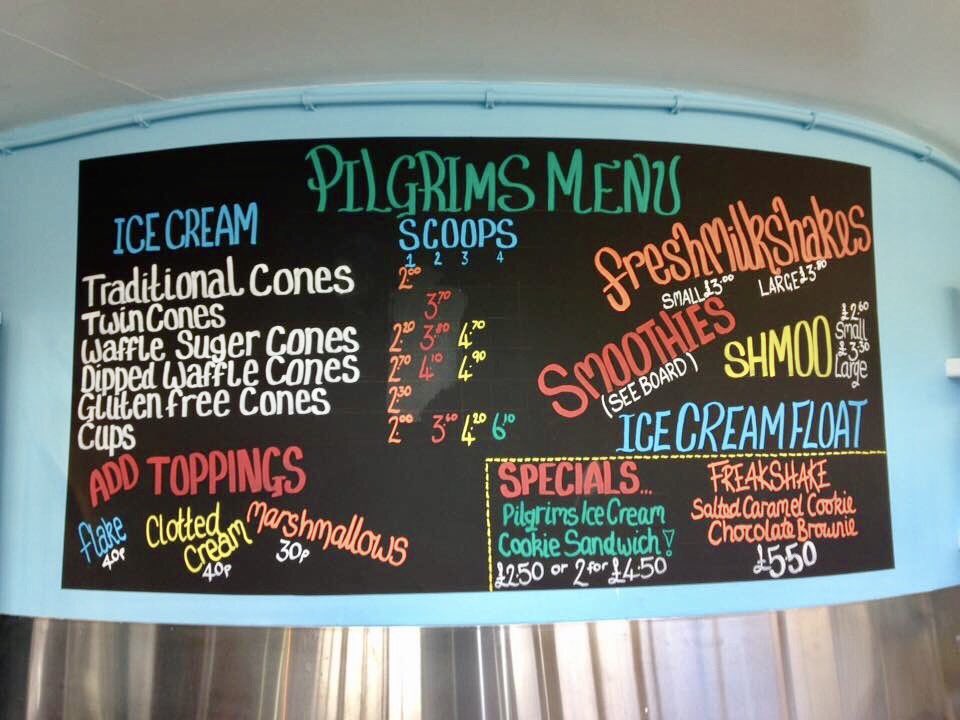 PILGRIMS MENU
ICE CREAM
SCOOPS
1 2 3 4
Traditional Cones 2.00
Twin Cones 3.70
Waffle Suger Cones 2.20 3.80 4.70
Dipped Waffle Cones 2.70 4.10 4.90
Gluten free Cones 2.30
Cups 2.00 3.60 4.20 6.10
ADD TOPPINGS
Flake
40p
Clotted
Cream
40p
Marshmallows
30p
fresh Milkshakes
SMALL £3.00 LARGE £3.80
SMOOTHIES
(SEE BOARD)
SHMOO
£2.60
Small
£3.30
Large
ICE CREAM FLOAT
SPECIALS...
Pilgrims Ice Cream
Cookie Sandwich!
£2.50 or 2 for £4.50
FREAKSHAKE
Salted Caramel Cookie
Chocolate Brownie
£5.50